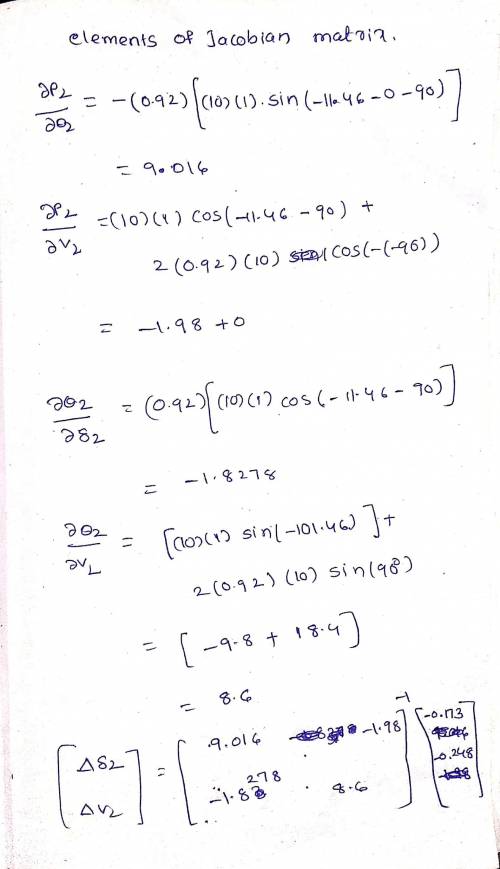 elements of Jacobian matrix.
∂P₂/∂θ₂ = -(0.92) [(10)(1).sin(-11.46-0-90)]
= 9.016
∂P₂/∂V₂ = (10)(1) cos(-11.46-90) +
2(0.92)(10) cos(-(-90))
= -1.98+0
∂θ₂/∂δ₂ = (0.92) [(10)(1) cos(-11.46-90)]
= -1.8278
∂θ₂/∂V₂ = [(10)(1) sin(-101.46)] +
2(0.92)(10) sin(90)
= [-9.8 + 18.4]
= 8.6
[Δδ₂ ΔV₂] = [9.016 -1.98 -1.8278 8.6]⁻¹ [-0.173 -0.248]